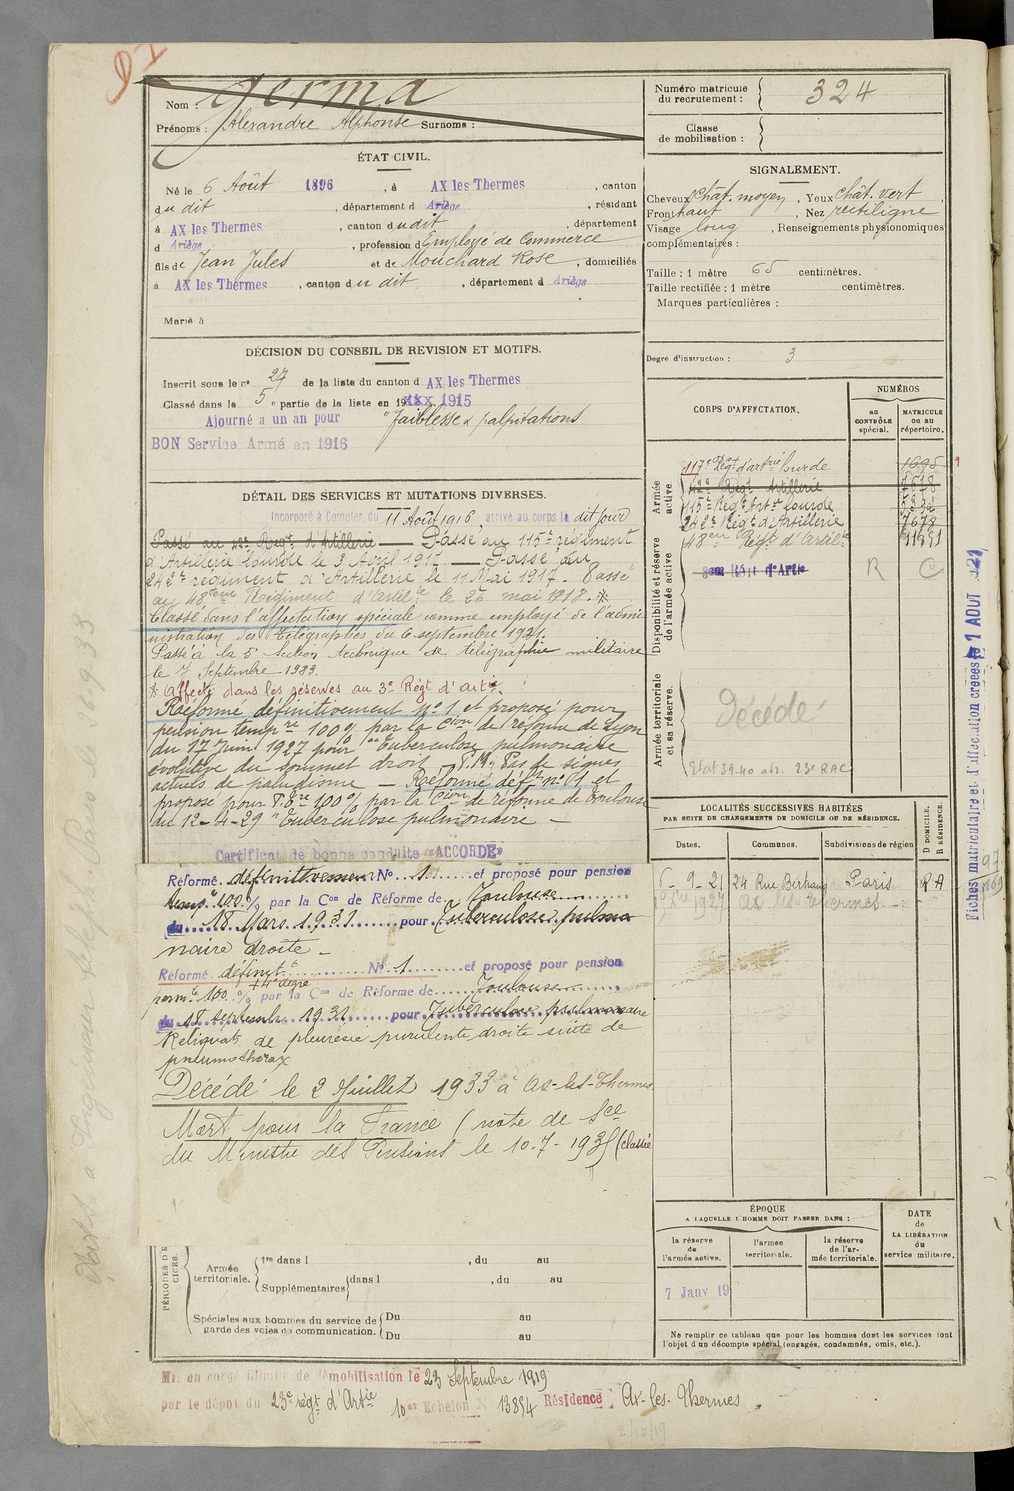 91
Nom : Germa
Prénoms : Alexandre Alphonse Surnoms :
Numéro matricule du recrutement : 324
Classe de mobilisation :
ÉTAT CIVIL.
Né le 6 Août 1896, à AX les Thermes, canton
du dit, département d Ariège, résidant
à AX les Thermes, canton dudit, département
d Ariège, profession d'Employé de Commerce
fils de Jean Jules et de Mouchard Rose, domiciliés
à AX les Thermes, canton du dit, département d Ariège
Marié à
SIGNALEMENT.
Cheveux chât. moyen, Yeux chât. vert,
Front haut, Nez rectiligne
Visage long, Renseignements physionomiques
complémentaires :
Taille : 1 mètre 65 centimètres.
Taille rectifiée : 1 mètre centimètres.
Marques particulières :
Degré d'instruction : 3
DÉCISION DU CONSEIL DE REVISION ET MOTIFS.
Inscrit sous le n° 27 de la liste du canton d AX les Thermes
Classé dans la 5e partie de la liste en 1915
Ajourné a un an pour "faiblesse & palpitations
BON Service Armé en 1916
DÉTAIL DES SERVICES ET MUTATIONS DIVERSES.
Incorporé à Compter du 11 Août 1916, arrivé au corps le dit jour
Passé au 42e Regt d'Artillerie — Passé au 115e régiment
d'Artillerie lourde le 3 Avril 1917. — Passé au
242e régiment d'Artillerie le 11 Mai 1917. Passé
au 48ème Régiment d'Artilie le 26 mai 1918. *
Classé dans l'affectation spéciale comme employé de l'admi
nistration des Télégraphes du 6 septembre 1921.
Passé à la 5e Section technique de télégraphie militaire
le 7 Septembre 1933.
* Affecté dans les réserves au 3e Régt d'artie.
Réformé définitivement N° 1 et proposé pour
pension tempre 100% par la Cion de réforme de Lyon
du 17 Juin 1927 pour "Tuberculose pulmonaire
évolutive du sommet droit P.M. Pas de signes
actuels de paludisme — Réformé déft n° 1 et
proposé pour P. Tre 100% par la Cion de réforme de Toulouse
du 12-4-29 "Tuberculose pulmonaire —
Certificat de bonne conduite «ACCORDÉ»
Réformé définitivement N° 1 et proposé pour pension
temp. 100% par la Con de Réforme de Toulouse
du 18 Mars 1931 pour Tuberculose pulmo
naire droite —
Réformé définit N° 1 et proposé pour pension
perm.te 100% + 4e degré par la Con de Réforme de Toulouse
du 18 septembre 1931 pour Tuberculose pulmonaire
Reliquats de pleurésie purulente droite suite de
pneumothorax
Décédé le 2 Juillet 1933 à Ax-les-Thermes
Mort pour la France (note de
du Ministre des Pensions le 10-7-1935 (classée
CORPS D'AFFECTATION.
NUMÉROS
au CONTRÔLE spécial.
MATRICULE ou au répertoire.
Armée active
117e Régt d'artrie lourde 1695
42e Regt Artillerie 7878
115e Régt Artie lourde
242e Régt d'Artillerie 7678
48eme Régt d'Artilie
Disponibilité et réserve de l'armée active
R C
Armée territoriale et sa réserve.
Décédé
Etat 39-40 23e RAC
LOCALITÉS SUCCESSIVES HABITÉES
PAR SUITE DE CHANGEMENTS DE DOMICILE OU DE RÉSIDENCE.
Dates. Communes. Subdivisions de région D DOMICILE. R RÉSIDENCE.
6-9-21 24 Rue Paris RA
1927 ax les Thermes
ÉPOQUE
A LAQUELLE L'HOMME DOIT PASSER DANS :
la réserve de l'armée active.
l'armée territoriale.
la réserve de l'armée territoriale.
DATE de LA LIBÉRATION du service militaire.
7 Janv 19
Ne remplir ce tableau que pour les hommes dont les services font
l'objet d'un décompte spécial (engagés, condamnés, omis, etc.).
Armée territoriale. 1re dans l , du au
Supplémentaires dans l , du au
Spéciales aux hommes du service de garde des voies de communication. Du au
Du au
Mis en congé illimité de démobilisation le 23 Septembre 1919
par le dépôt du 23e régt d'Artie 10er Echelon N 13854 Résidence : Ax-les-Thermes.
2/10/19